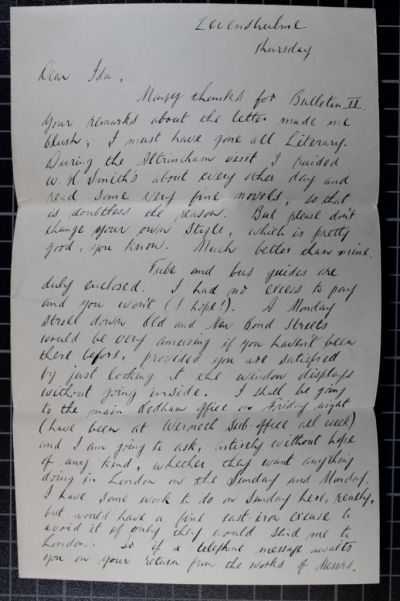 Levenshulme
Thursday.
Dear Ida,
Many thanks for Bulletin II.
Your remarks about the letter made me
blush; I must have gone all Literary.
During the Altrincham visit I raided
W. H. Smith's about every other day and
read some very fine novels, so that
is doubtless the reason. But please don't
change your own style, which is pretty
good, you know. Much better than mine.
Tube and bus guides are
duly enclosed. I had no excess to pay
and you won't (I hope!). A Monday
stroll down Old and New Bond Streets
would be very amusing if you haven't been
there before, provided you are satisfied
by just looking at the window displays
without going inside. I shall be going
to the main office on Friday night
(have been at sub-office all week)
and I am going to ask, entirely without hope
of any kind, whether they want anything
doing in London on the Sunday and Monday.
I have some work to do on Sunday here, really,
but would have a fine cast-iron excuse to
avoid it if only they would send me to
London. So if a telephone message awaits
you on your return from the works of Messrs.